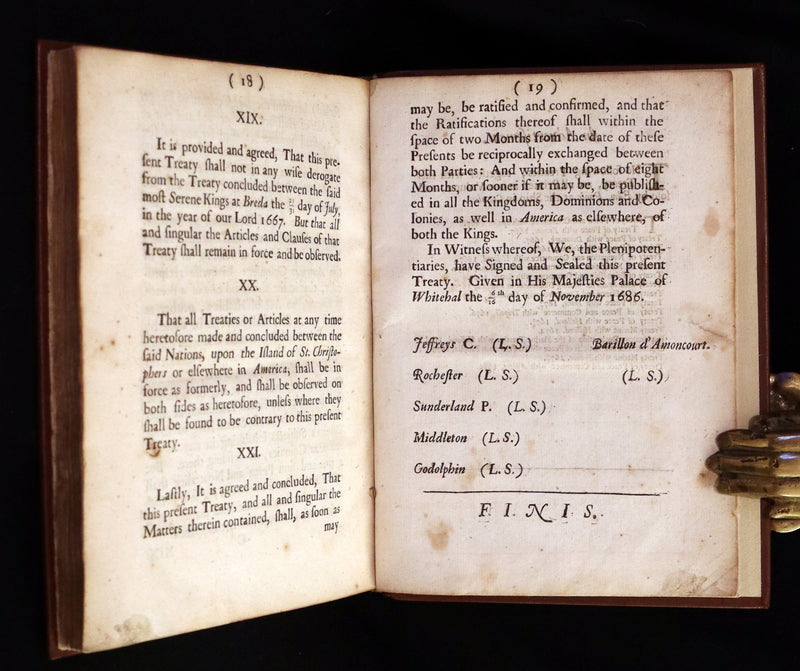 ( 18 )
XIX.
It is provided and agreed, That this pre-
ſent Treaty ſhall not in any wiſe derogate
from the Treaty concluded between the ſaid
moſt Serene Kings at Breda the 21/31 day of July,
in the year of our Lord 1667. But that all
and ſingular the Articles and Clauſes of that
Treaty ſhall remain in force and be obſerved.
XX.
That all Treaties or Articles at any time
heretofore made and concluded between the
ſaid Nations, upon the Iſland of St. Chriſto-
phers or elſewhere in America, ſhall be in
force as formerly, and ſhall be obſerved on
both ſides as heretofore, unleſs where they
ſhall be found to be contrary to this preſent
Treaty.
XXI.
Laſtly, It is agreed and concluded, That
this preſent Treaty, and all and ſingular the
Matters therein contained, ſhall, as ſoon as
may
( 19 )
may be, be ratified and confirmed, and that
the Ratifications thereof ſhall within the
ſpace of two Months from the date of theſe
Preſents be reciprocally exchanged between
both Parties: And within the ſpace of eight
Months, or ſooner if it may be, be publiſh-
ed in all the Kingdoms, Dominions and Co-
lonies, as well in America as elſewhere, of
both the Kings.
In Witneſs whereof, We, the Plenipoten-
tiaries, have Signed and Sealed this preſent
Treaty. Given in His Majeſties Palace of
Whitehal the 6/16 th day of November 1686.
Jeffreys C. (L. S.) Barillon d'Amoncourt.
Rocheſter (L. S.) (L. S.)
Sunderland P. (L. S.)
Middleton (L. S.)
Godolphin (L. S.)
F I N I S.